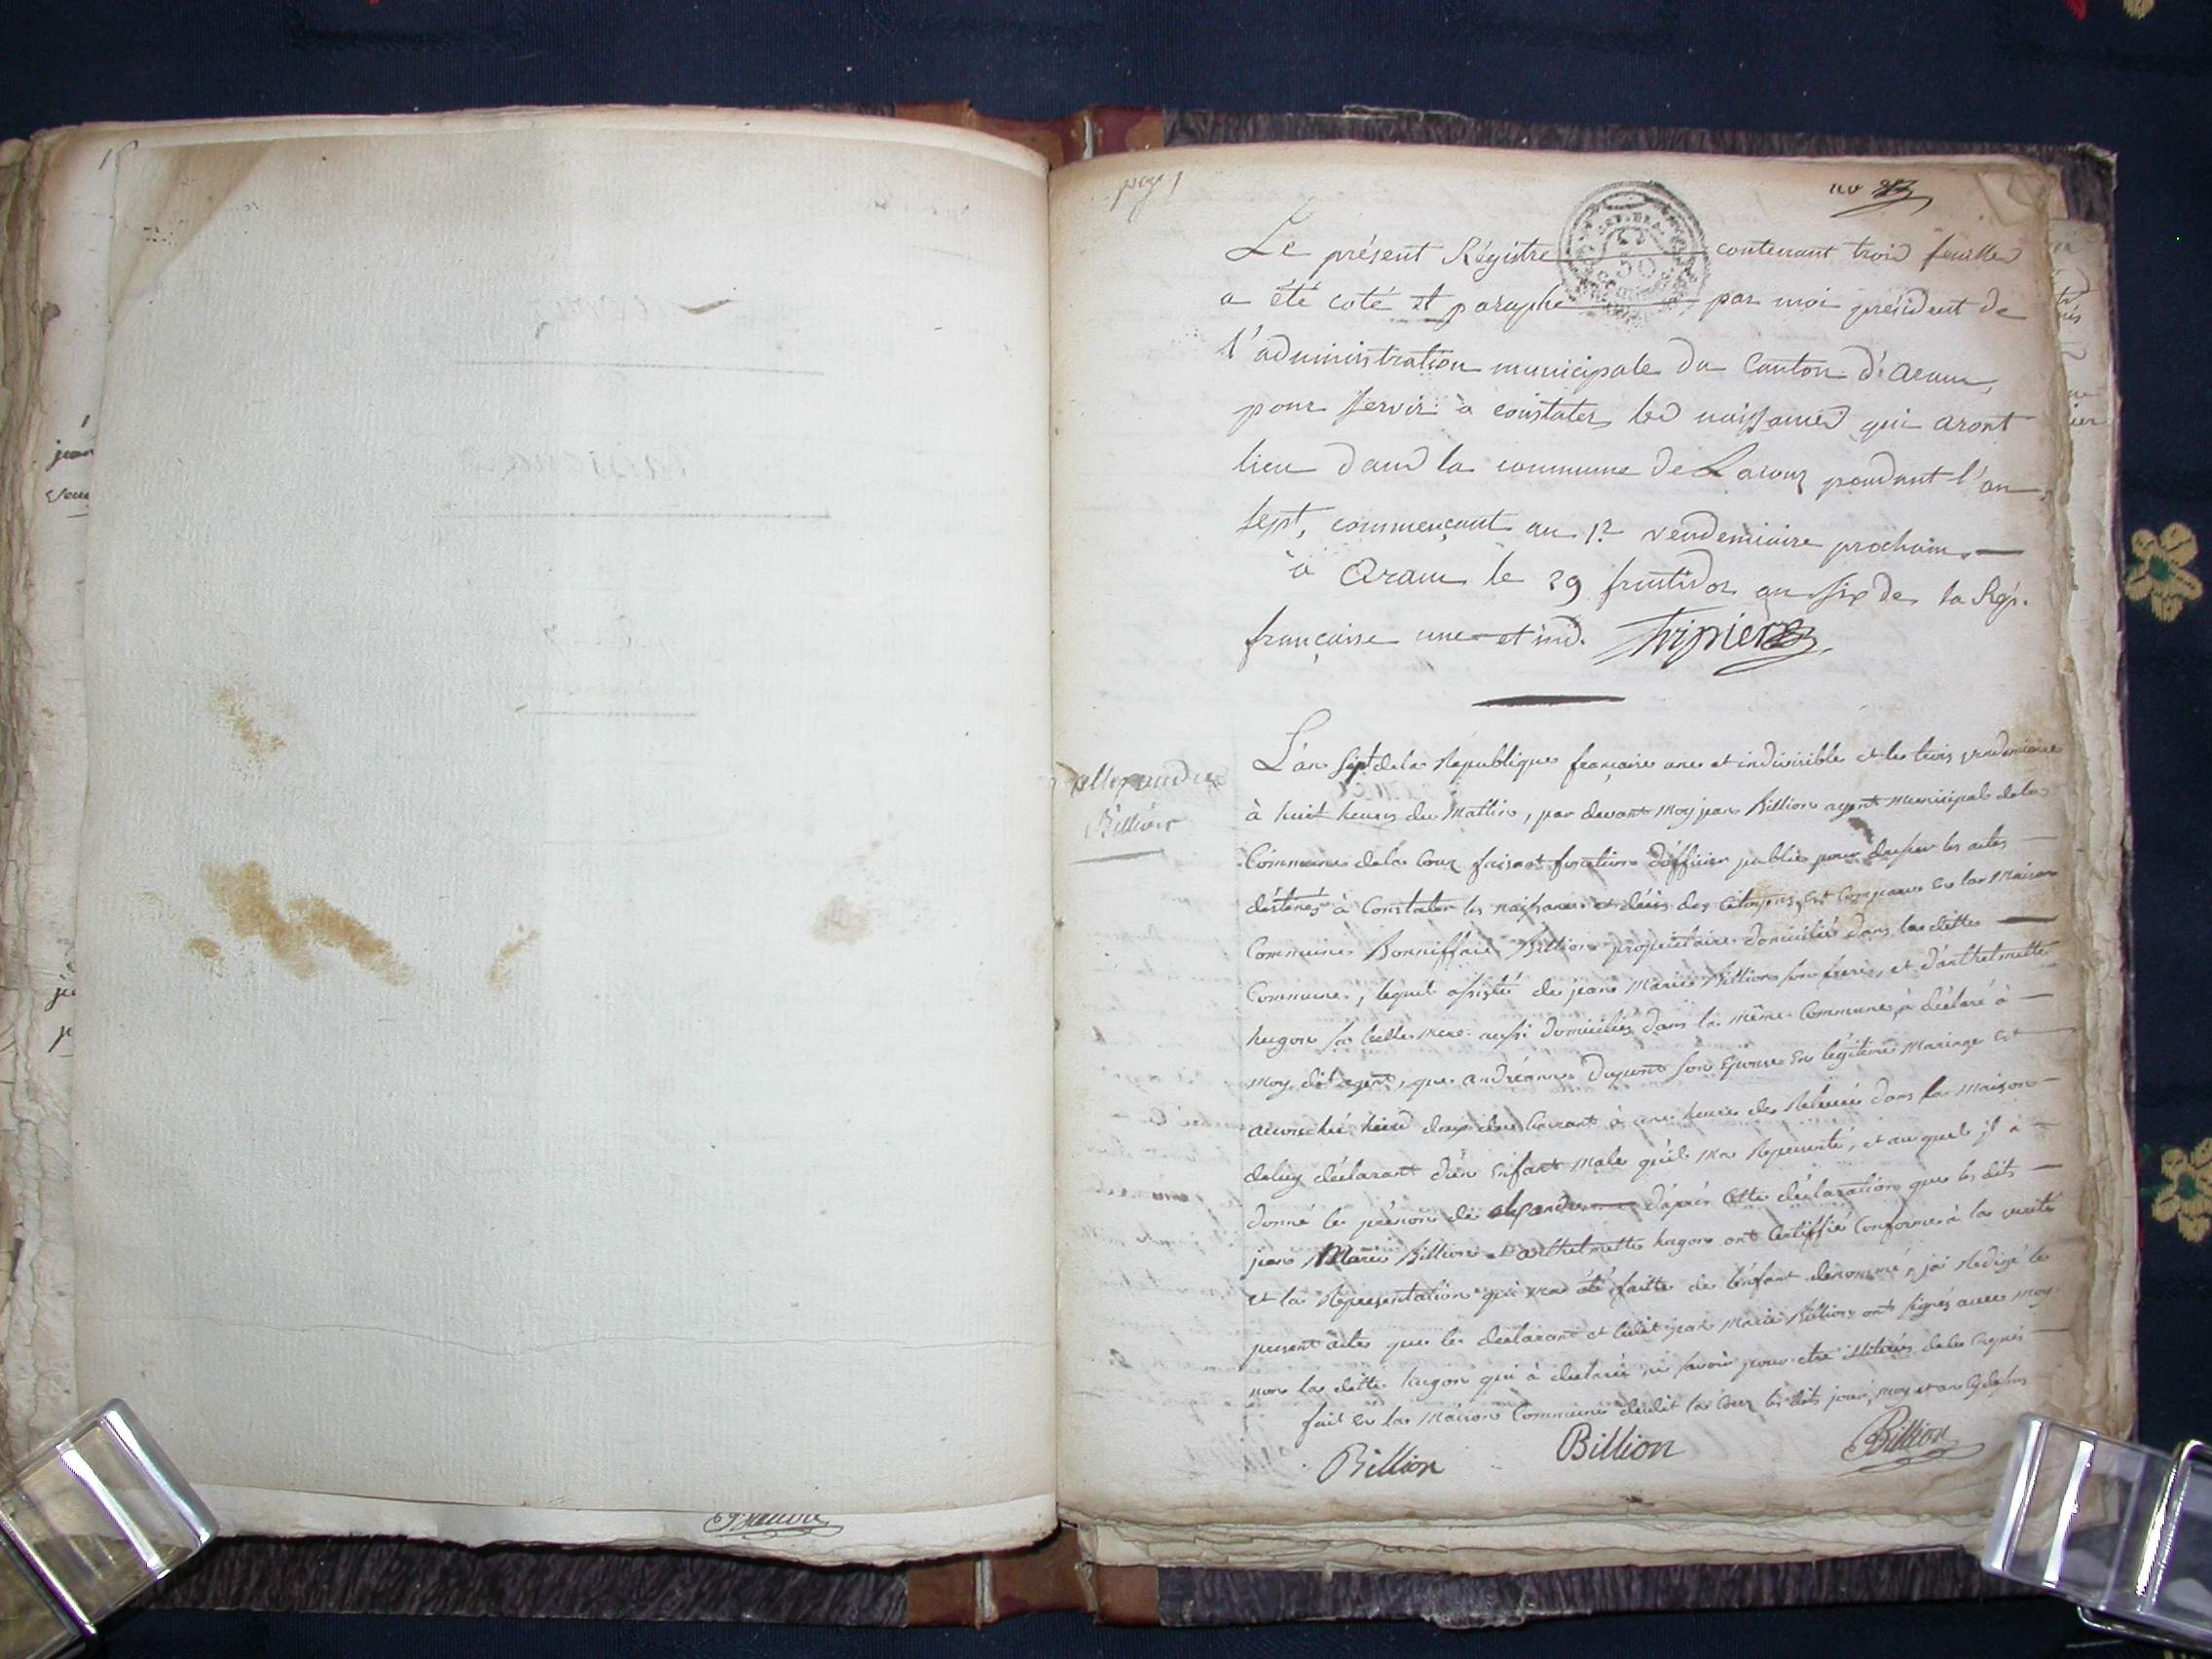 page 1
Le présent Régistre contenant trois feuilles
a été coté et paraphé par moi président de
l'administration municipale du Canton d'aranc,
pour servir à constater les naissances qui aront
lieu dans la commune de Lacoux pendant l'an
sept, commençant au 1er vendemiaire prochain.
à Aranc le 29 fructidor an six de la Rép.
française une et ind. Tripier
allexandre
Billion
L'an sept de la Republique française une et indivisible et le trois vendemiaire
à huit heures du Mattin, par devant moy jean Billion agent municipal de la
Commune de la Coux faisant fonction d'officier public pour dresser les actes
déstinés à Constater les naissances et décès des Citoyens, est Comparu en la Maison
Commune Bonniffaie Billion propriétaire domicilié dans la ditte
Commune, lequel assisté de jean Marie Billion son frere, et d'anthelmette
hugon sa belle mere aussi domiciliés dans la même Commune, à déclaré à
moy dit agent, que andréanne dupont son Epouse En légitime Mariage est
accouché hier deux du Courant à une heure de Relevée dans la maison
de luy déclarant d'un Enfant male qu'il ma Representé, et au quel il à
donné le prénom de alexandre d'après Cette déclaration que les dits
jean Marie Billion et anthelmette hugon ont Certiffié Conforme à la verité
et la Representation qui ma été faitte de l'enfant denommé, jai Redigé le
present acte que le declarant et ledit jean Marie Billion ont signés avec moy
non la ditte hugon qui à declaré ne savoir pour etre illiterée de ce Enquis
fait En la Maison Commune dudit la Coux les dits jour, moy et an Cy dessus
Billion Billion Billion